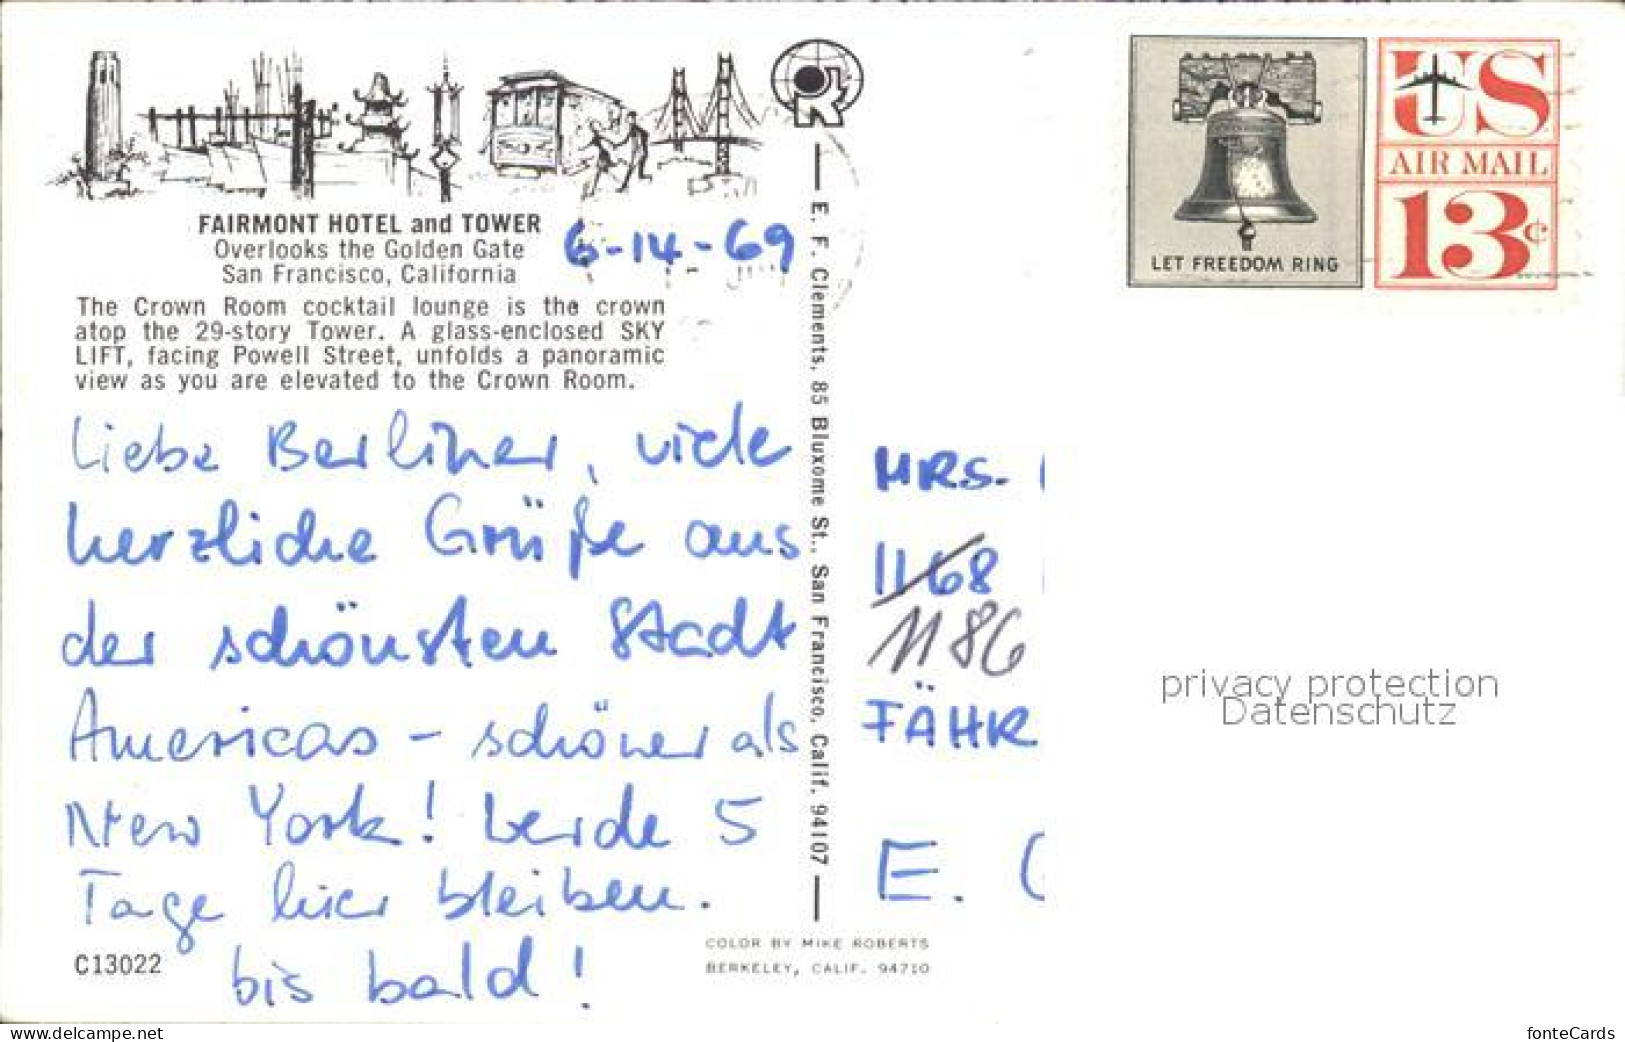 FAIRMONT HOTEL and TOWER
Overlooks the Golden Gate
San Francisco, California
6-14-69
The Crown Room cocktail lounge is the crown
atop the 29-story Tower. A glass-enclosed SKY
LIFT, facing Powell Street, unfolds a panoramic
view as you are elevated to the Crown Room.
Liebe Berliner, viele
herzliche Grüße aus
der schönsten Stadt
Americas - schöner als
New York! Werde 5
Tage hier bleiben.
bis bald!
C13022
E. F. Clements, 85 Bluxome St., San Francisco, Calif. 94107
COLOR BY MIKE ROBERTS
BERKELEY, CALIF. 94710
LET FREEDOM RING
US
AIR MAIL
13c
MRS.
1168
1186
FÄHR
E.
privacy protection
Datenschutz
www.delcampe.net
fonteCards